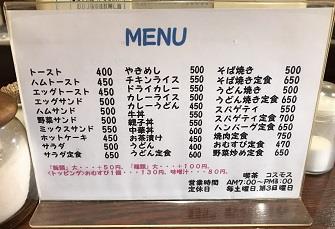 MENU
トースト 400
ハムトースト 450
エッグトースト 450
エッグサンド 500
ハムサンド 500
野菜サンド 500
ミックスサンド 550
ホットケーキ 450
サラダ 500
サラダ定食 600
やきめし 500
チキンライス 550
ドライカレー 550
カレーライス 500
カレーうどん 450
牛丼 550
親子丼 550
中華丼 600
お茶漬け 500
うどん 400
うどん定食 600
そば焼き 500
そば焼き定食 600
うどん焼き 500
うどん焼き定食 600
スパゲテイ 550
スパゲテイ定食 700
ハンバーグ定食 650
焼肉定食 750
おむすび定食 470
野菜炒め定食 650
「飯類」大・・・+50円、「麺類」大・・・+100円、
<トッピング>おむすび1個・・・130円、味噌汁・・・80円、
喫茶 コスモス
営業時間 AM7:00~PM8:00
定休日 毎土曜日.第3日曜日